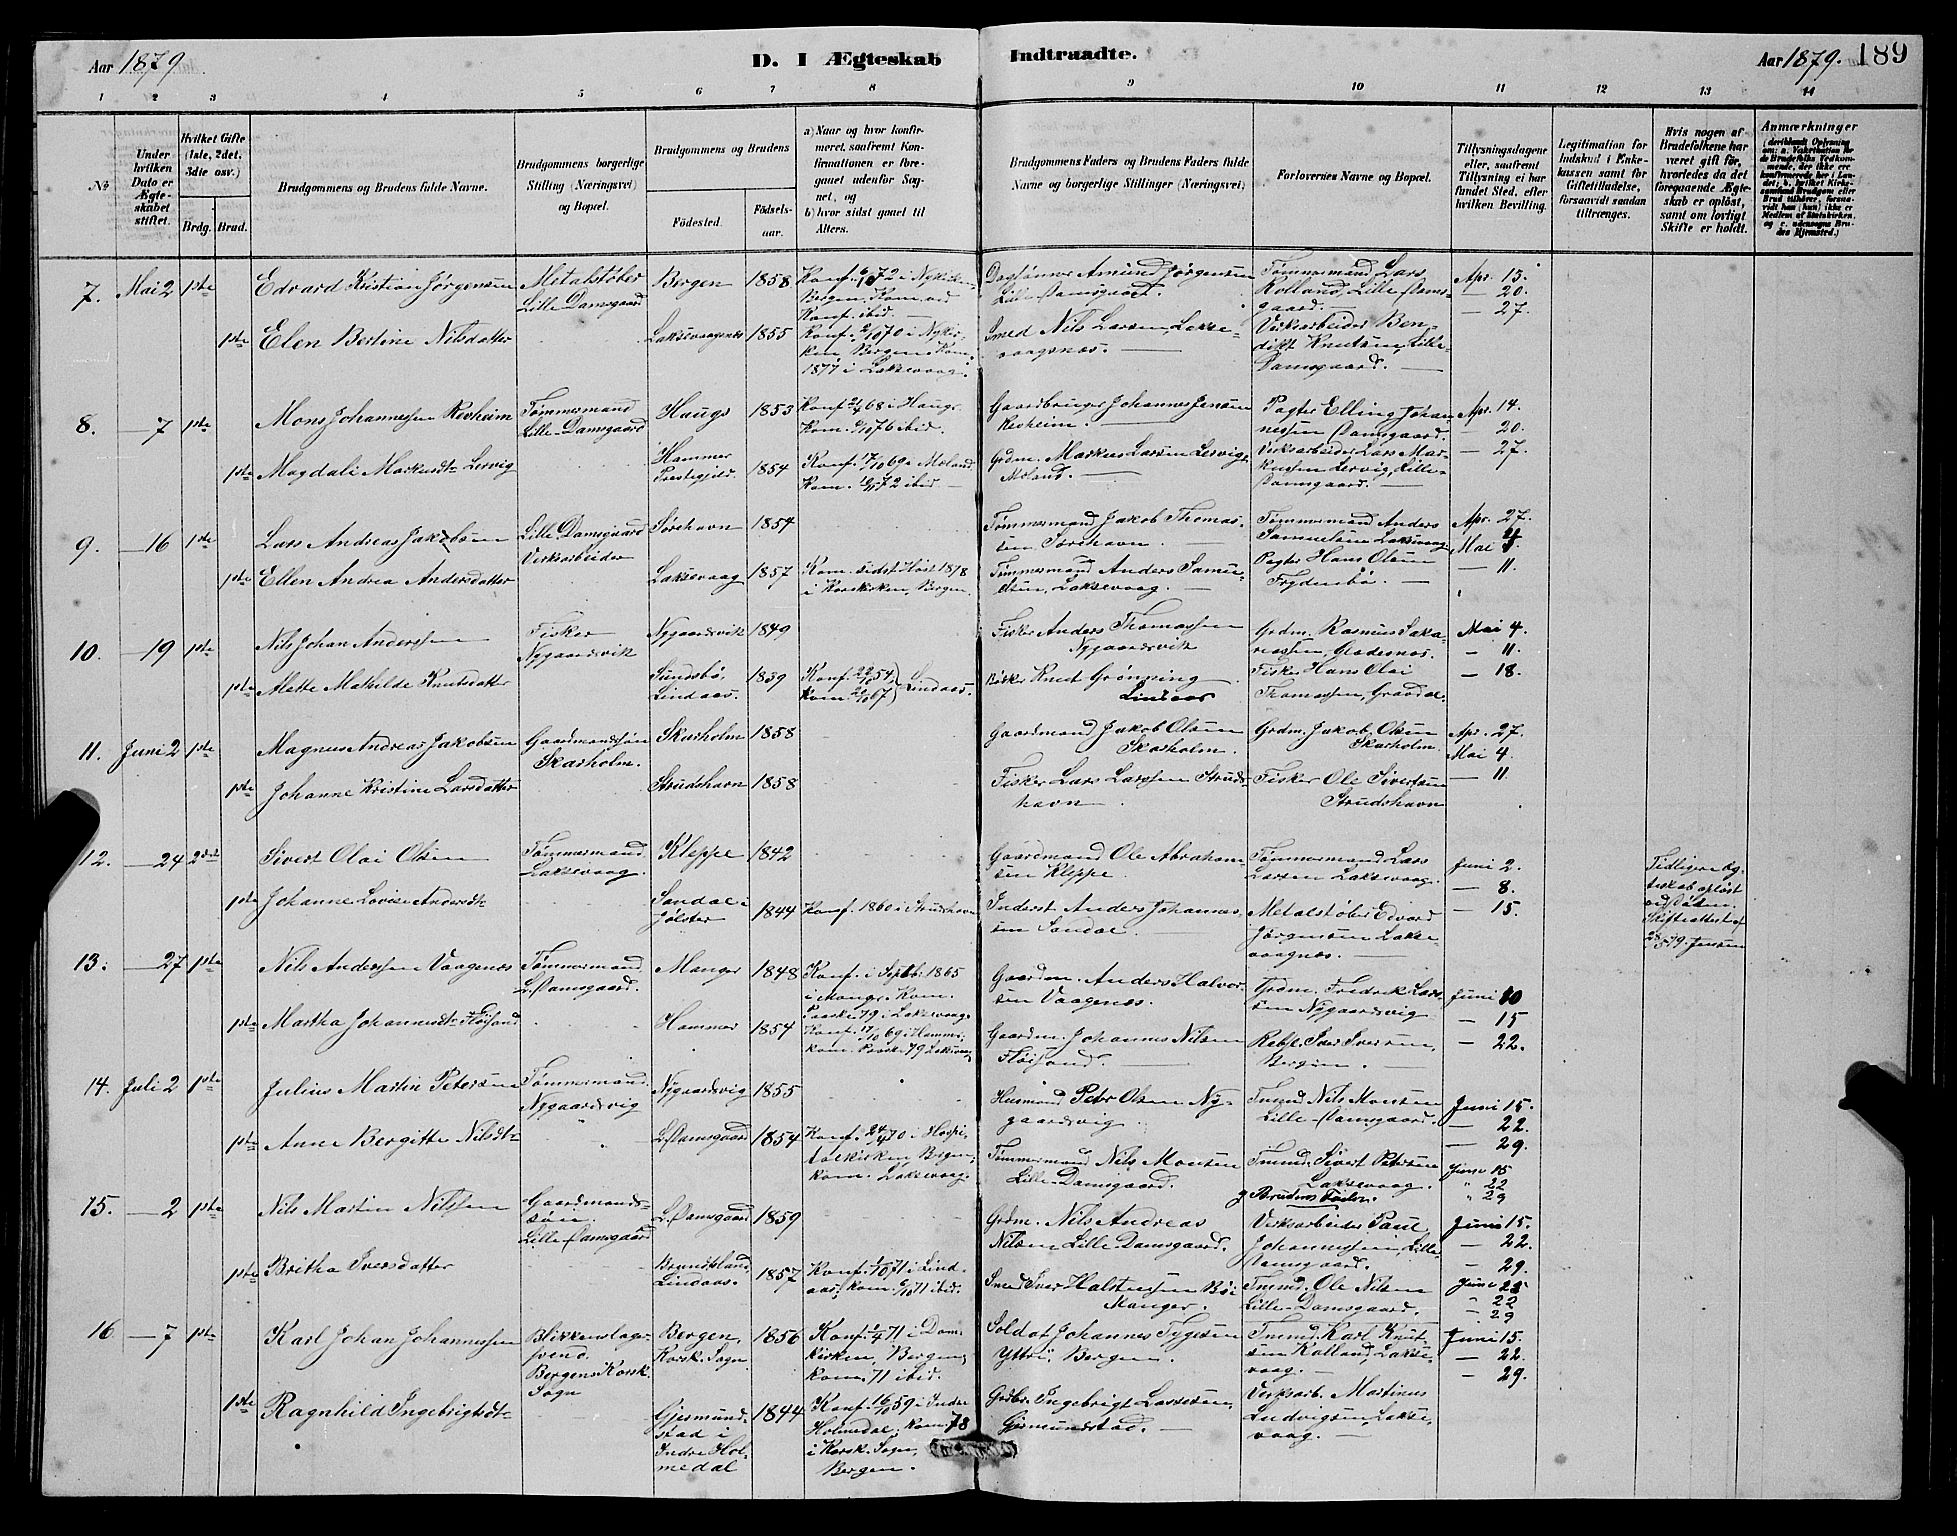 Aar 1879 D. I Ægteskab Indtraadte. Aar 1879. 189
1 2 3 4 5 6 7 8 9 10 11 12 13 14
No
Under hvilken Dato er Ægteskabet stiftet.
Hvilket Gifte (1ste, 2det, 3die osv.)
Brdg. Brud.
Brudgommens og Brudens fulde Navne.
Brudgommens borgerlige Stilling (Næringsvei) og Bopæl.
Brudgommens og Brudens
Födested. Födsels-aar.
a) Naar og hvor konfirmeret, saafremt Konfirmationen er foregaaet udenfor Sognet, og
b) hvor sidst gaaet til Alters.
Brudgommens Faders og Brudens Faders fulde Navne og borgerlige Stillinger (Næringsvei)
Forlovernes Navne og Bopæl.
Tillysningsdagene eller, saafremt Tillysning ei har fundet Sted, efter hvilken Bevilling.
Legitimation for Indskud i Enkekassen samt for Giftetilladelse, forsaavidt saadan tiltrænges.
Hvis nogen af Brudefolkene har været gift för, hvorledes da det foregaaende Ægteskab er oplöst, samt om lovligt Skifte er holdt.
Anmærkninger
7. Mai 2 1ste Edvard Kristian Jørgensen Metalstøber Lille Damsgaard Bergen 1858 Konf. 72 i Nykirken Bergen. Kom. ved Konf. ibid. Daglønner Amund Jørgensen Lille Damsgaard. Tømmermand Lars Kolland, Lille Damsgaard. Apr. 13. — 20. — 27.
1ste Elen Bertine Nilsdatter Laksevaagenæs 1855 Konf. 2/10 70 i Nykirken Bergen. Kom. 1877 i Laksevaag. Smed Nils Larsen Laksevaagsnæs. Verksarbeider Bendikt Knutsen, Lille Damsgaard.
8. — 7 1ste Mons Johannessen Revheim Tømmermand Lille-Damsgaard Haugs 1853 Konf. 68 i Haugs. Kom. 76 ibid. Gaardbruger Johannes Jensen Revheim. Pagter Elling Johannessen Damsgaard. Apr. 14. — 20. — 27.
1ste Magdali Markusdt. Lervig Hammer Prestegjeld. 1854 Konf. 17/10 69 i Moland Kom. 72 ibid. Grdm. Markus Larsen Lervig, Moland. Verksarbeider Lars Markussen Lervig, Lille-Damsgaard.
9. — 16 1ste Lars Andreas Jakobsen Lille Damsgaard Verksarbeider Sørehavn 1854 Tømmermand Jakob Thomassen Sørehavn. Tømmermand Anders Samuelsen Laksevaag Apr. 27. Mai 4. — 11.
1ste Ellen Andrea Andersdatter Laksevaag 1857 Kom. sidst Høst 1878 i Korskirken, Bergen. Tømmermand Anders Samuelsen, Laksevaag. Pagter Hans Olsen Frydenbø.
10. — 19 1ste Nils Johan Anderssen Fisker Nygaardsvik Nygaardsvik 1849 Fisker Anders Thomassen Nygaardsvik Grdm. Rasmus Sakariassen, Gladesnæs. Mai 4. — 11. — 18.
1ste Mette Mathilde Knutsdatter Sundsbø, Lindaas. 1839 Konf. 54 Kom. 67 Lindaas. Bøkker Knut Grønning Lindaas Fisker Hans Olai Thomassen, Graadal
11. Juni 2 1ste Magnus Andreas Jakobsen Gaardmandssøn Skarholm. Skarholm 1858 Gaardmand Jakob Olsen Skarholm. Grdm. Jakob Olsen Skarholm. Apr. 27. Mai 4. — 11.
1ste Johanne Kristine Larsdatter Strudshavn 1858 Fisker Lars Larssen Strudshavn. Fisker Ole Sivertsen Strudshavn
12. — 24 2det Sivert Olai Olsen Tømmermand Laksevaag. Kleppe 1842 Gaardmand Ole Abrahamsen Kleppe. Tømmermand Lars Larsen Laksevaag. Juni 2. — 8. — 15. Tidligere Ægteskab opløst ved Døden. Skifteattest af 79. Jensen
1ste Johanne Lovise Andersdt. Sandal i Jølster 1844 Konf. 1860 i Strudshavn Inderst Anders Johannessen Sandal. Metalstøber Edvard Jørgensen Laksevaagnæs.
13. — 27 1ste Nils Anderssen Vaagenæs Tømmermand L. Damsgaard. Manger 1848 Konf. i Septb. 1865 i Manger. Kom. Paaske 79 i Laksevaag. Gaardm. Anders Halvorsen Vaagenæs. Grdm. Fredrik Larssen Nygaardsvig Juni 10 — 15 — 22.
1ste Martha Johannesdt. Fløisand Hammer 1854 Konf. 17/10 69 i Hammer, Kom. Paask. 79 Laksevaag Gaardm. Johannes Nilsen Fløisand. Rebsl. Iver Iversen, Bergen.
14. Juli 2 1ste Julius Martin Petersen Tømmermand. Nygaardsvig Nygaardsvig 1855 Husmand Petr Olsen Nygaardsvig. Tmmd. Nils Monsen Lille-Damsgaard. Juni 15. — 22. — 29.
1ste Anne Bergitte Nilsdt. L. Damsgaard 1854 Konf. 24/4 70 i Hospitalskirken Bergen, Kom. Laksevaag. Tømmermand Nils Monsen Lille-Damsgaard. Tmmd. Sivert Petersen Laksevaag. g Brudens Fader. Juni 15 " 22 " 29
15. — 2 1ste Nils Martin Nilssen Gaardmandssøn Lille Damsgaard L. Damsgaard 1859 Grdm. Nils Andreas Nilsen Lille Damsgaard. Verksarbeider Paul Johannessen, Lille Damsgaard. Juni 15. — 22. — 29.
1ste Britha Iversdatter Brundtland, Lindaas. 1857 Konf. 71 i Lindaas, kom. 71 ibid. Smed Iver Halstensen Bø i Manger. Tmmd. Ole Nilsen Lille-Damsgaard. Juni 15 " 22 " 29
16 — 7 1ste Karl Johan Johannessen Blikkenslagersvend. Bergens Korsk. Sogn Bergen, Korsk. Sogn 1856 Konf. 71 i Domkirken, Bergen, kom. 71 ibid. Soldat Johannes Tygesen Yttri, Bergen. Tmmd. Karl Knutsen Kolland, Laksevaag. Juni 15. — 22. — 29.
1ste Ragnhild Ingebrigtsdt. Gjesmundstad i Indre Holmedal 1844 Konf. 59 i Indre Holmedal, kom. 78 i Korsk. Sogn, Bergen. Grdbr. Ingebrigt Lassesen, Gjesmundstad. Verksarb. Martinus Ludvigsen, Laksevaag.